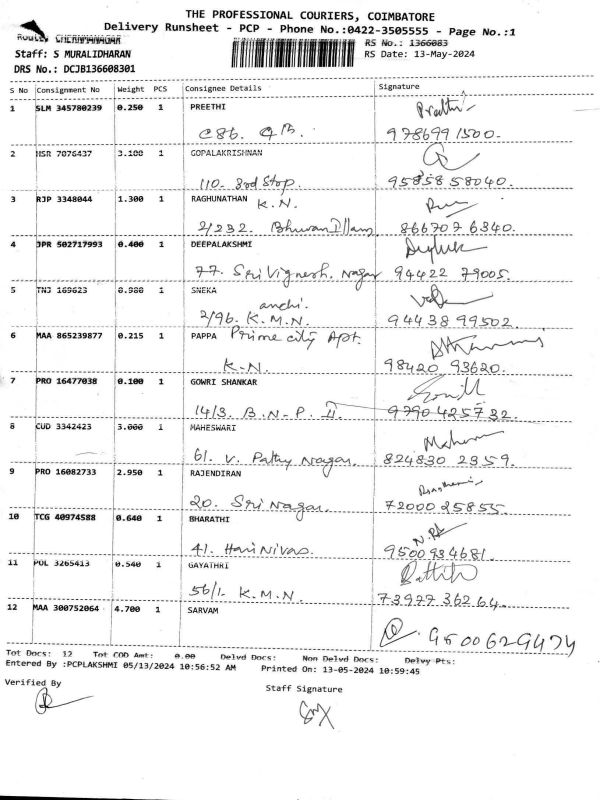 THE PROFESSIONAL COURIERS, COIMBATORE
Delivery Runsheet - PCP - Phone No.:0422-3505555 - Page No.:1
Route: CHERANMANAGAR RS No.: 1366083
Staff: S MURALIDHARAN RS Date: 13-May-2024
DRS No.: DCJB136608301
S No Consignment No Weight PCS Consignee Details Signature
1 SLM 345780239 0.250 1 PREETHI Preethi
C86. 9th. 9786991500.
2 HSR 7076437 3.100 1 GOPALAKRISHNAN
110. 3rd Stop. 95858 58040.
3 RJP 3348044 1.300 1 RAGHUNATHAN K.N.
2/232. Bhuvan Illam, 866707 6340.
4 JPR 502717993 0.400 1 DEEPALAKSHMI
77. Sri Vignesh. Nagar 94422 79005.
5 TNJ 169623 0.980 1 SNEKA
2/96. K.M.N. 94438 99502.
6 MAA 865239877 0.215 1 PAPPA Prime city Apt.
K.N. 98420 93620.
7 PRO 16477038 0.100 1 GOWRI SHANKAR
14/3. B.N-P. II 9790425732.
8 CUD 3342423 3.000 1 MAHESWARI
61. V. Pathy Nagar. 824830 2359.
9 PRO 16082733 2.950 1 RAJENDIRAN
20. Sri Nagar. 72000 25855.
10 TCG 40974588 0.640 1 BHARATHI
41. Hari Nivas. 9500934681.
11 POL 3265413 0.540 1 GAYATHRI
56/1. K.M.N. 73977 36264.
12 MAA 300752064 4.700 1 SARVAM
9500629474
Tot Docs: 12 Tot COD Amt: 0.00 Delvd Docs: Non Delvd Docs: Delvy Pts:
Entered By :PCPLAKSHMI 05/13/2024 10:56:52 AM Printed On: 13-05-2024 10:59:45
Verified By Staff Signature